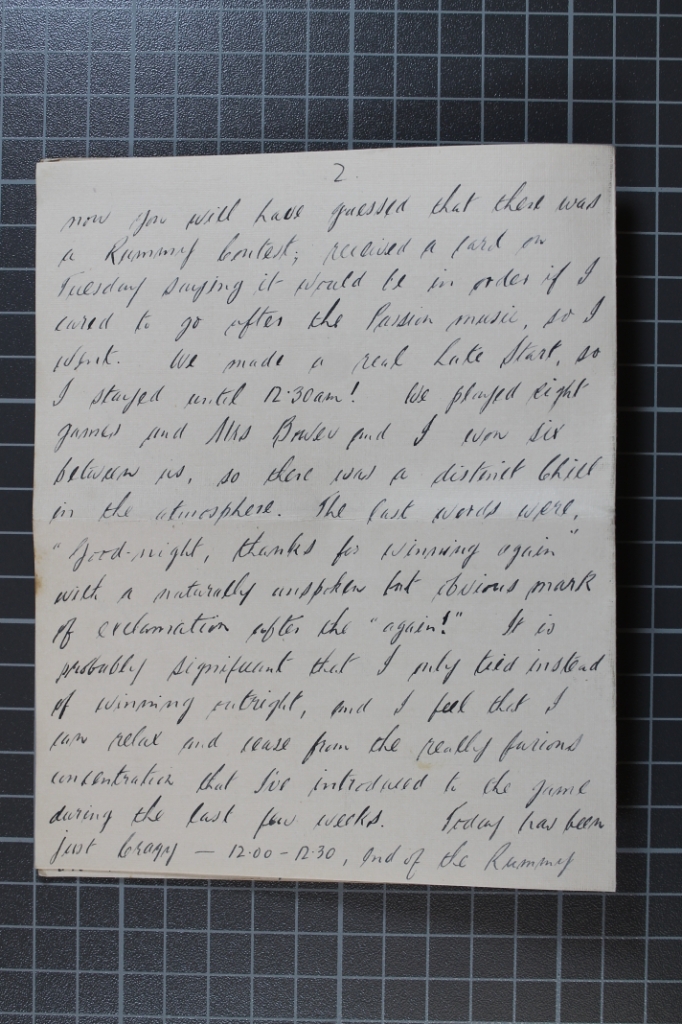 2
now you will have guessed that there was
a Rummy Contest; received a card on
Tuesday saying it would be in order if I
cared to go after the Passion music, so I
went. We made a real Late Start, so
I stayed until 12.30am! We played eight
games and Mrs Bower and I won six
between us, so there was a distinct Chill
in the atmosphere. The last words were,
"Good-night, thanks for winning again"
with a naturally unspoken but obvious mark
of exclamation after the "again!" It is
probably significant that I only tied instead
of winning outright, and I feel that I
can relax and cease from the really furious
concentration that I've introduced to the game
during the last few weeks. Today has been
just Crazy — 12.00-12.30, End of the Rummy